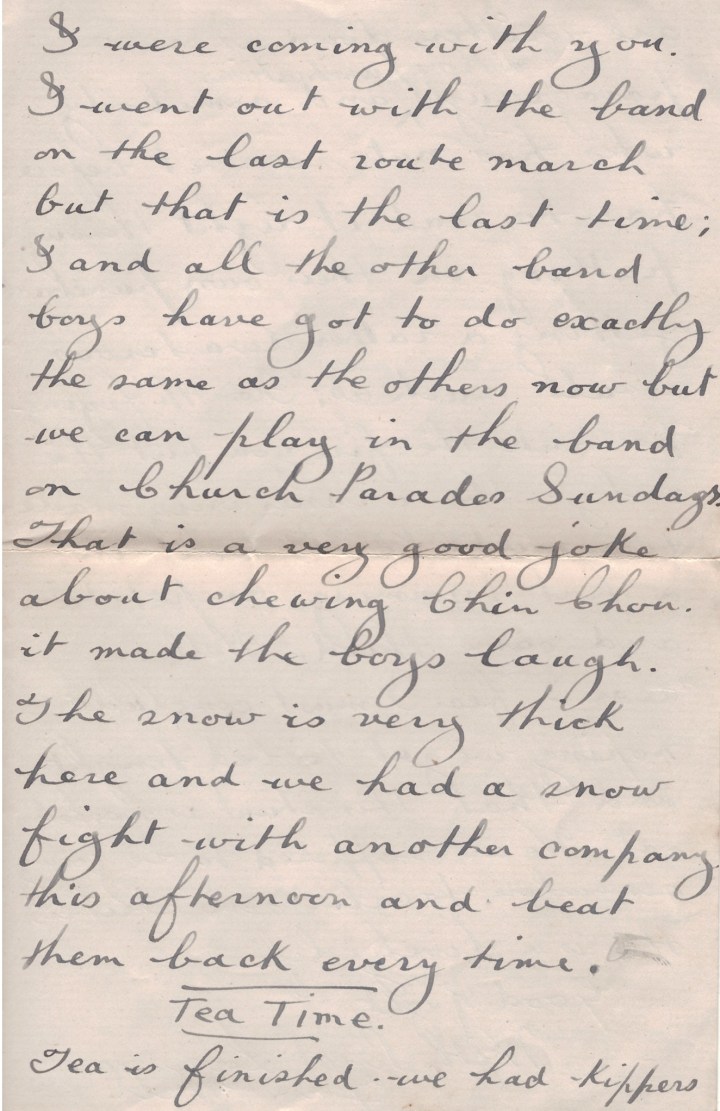 I were coming with you.
I went out with the band
on the last route march
but that is the last time;
I and all the other band
boys have got to do exactly
the same as the others now but
we can play in the band
on Church Parades Sundays.
That is a very good joke
about chewing Chin Chou.
it made the boys laugh.
The snow is very thick
here and we had a snow
fight with another company
this afternoon and beat
them back every time.
Tea Time.
Tea is finished. we had Kippers